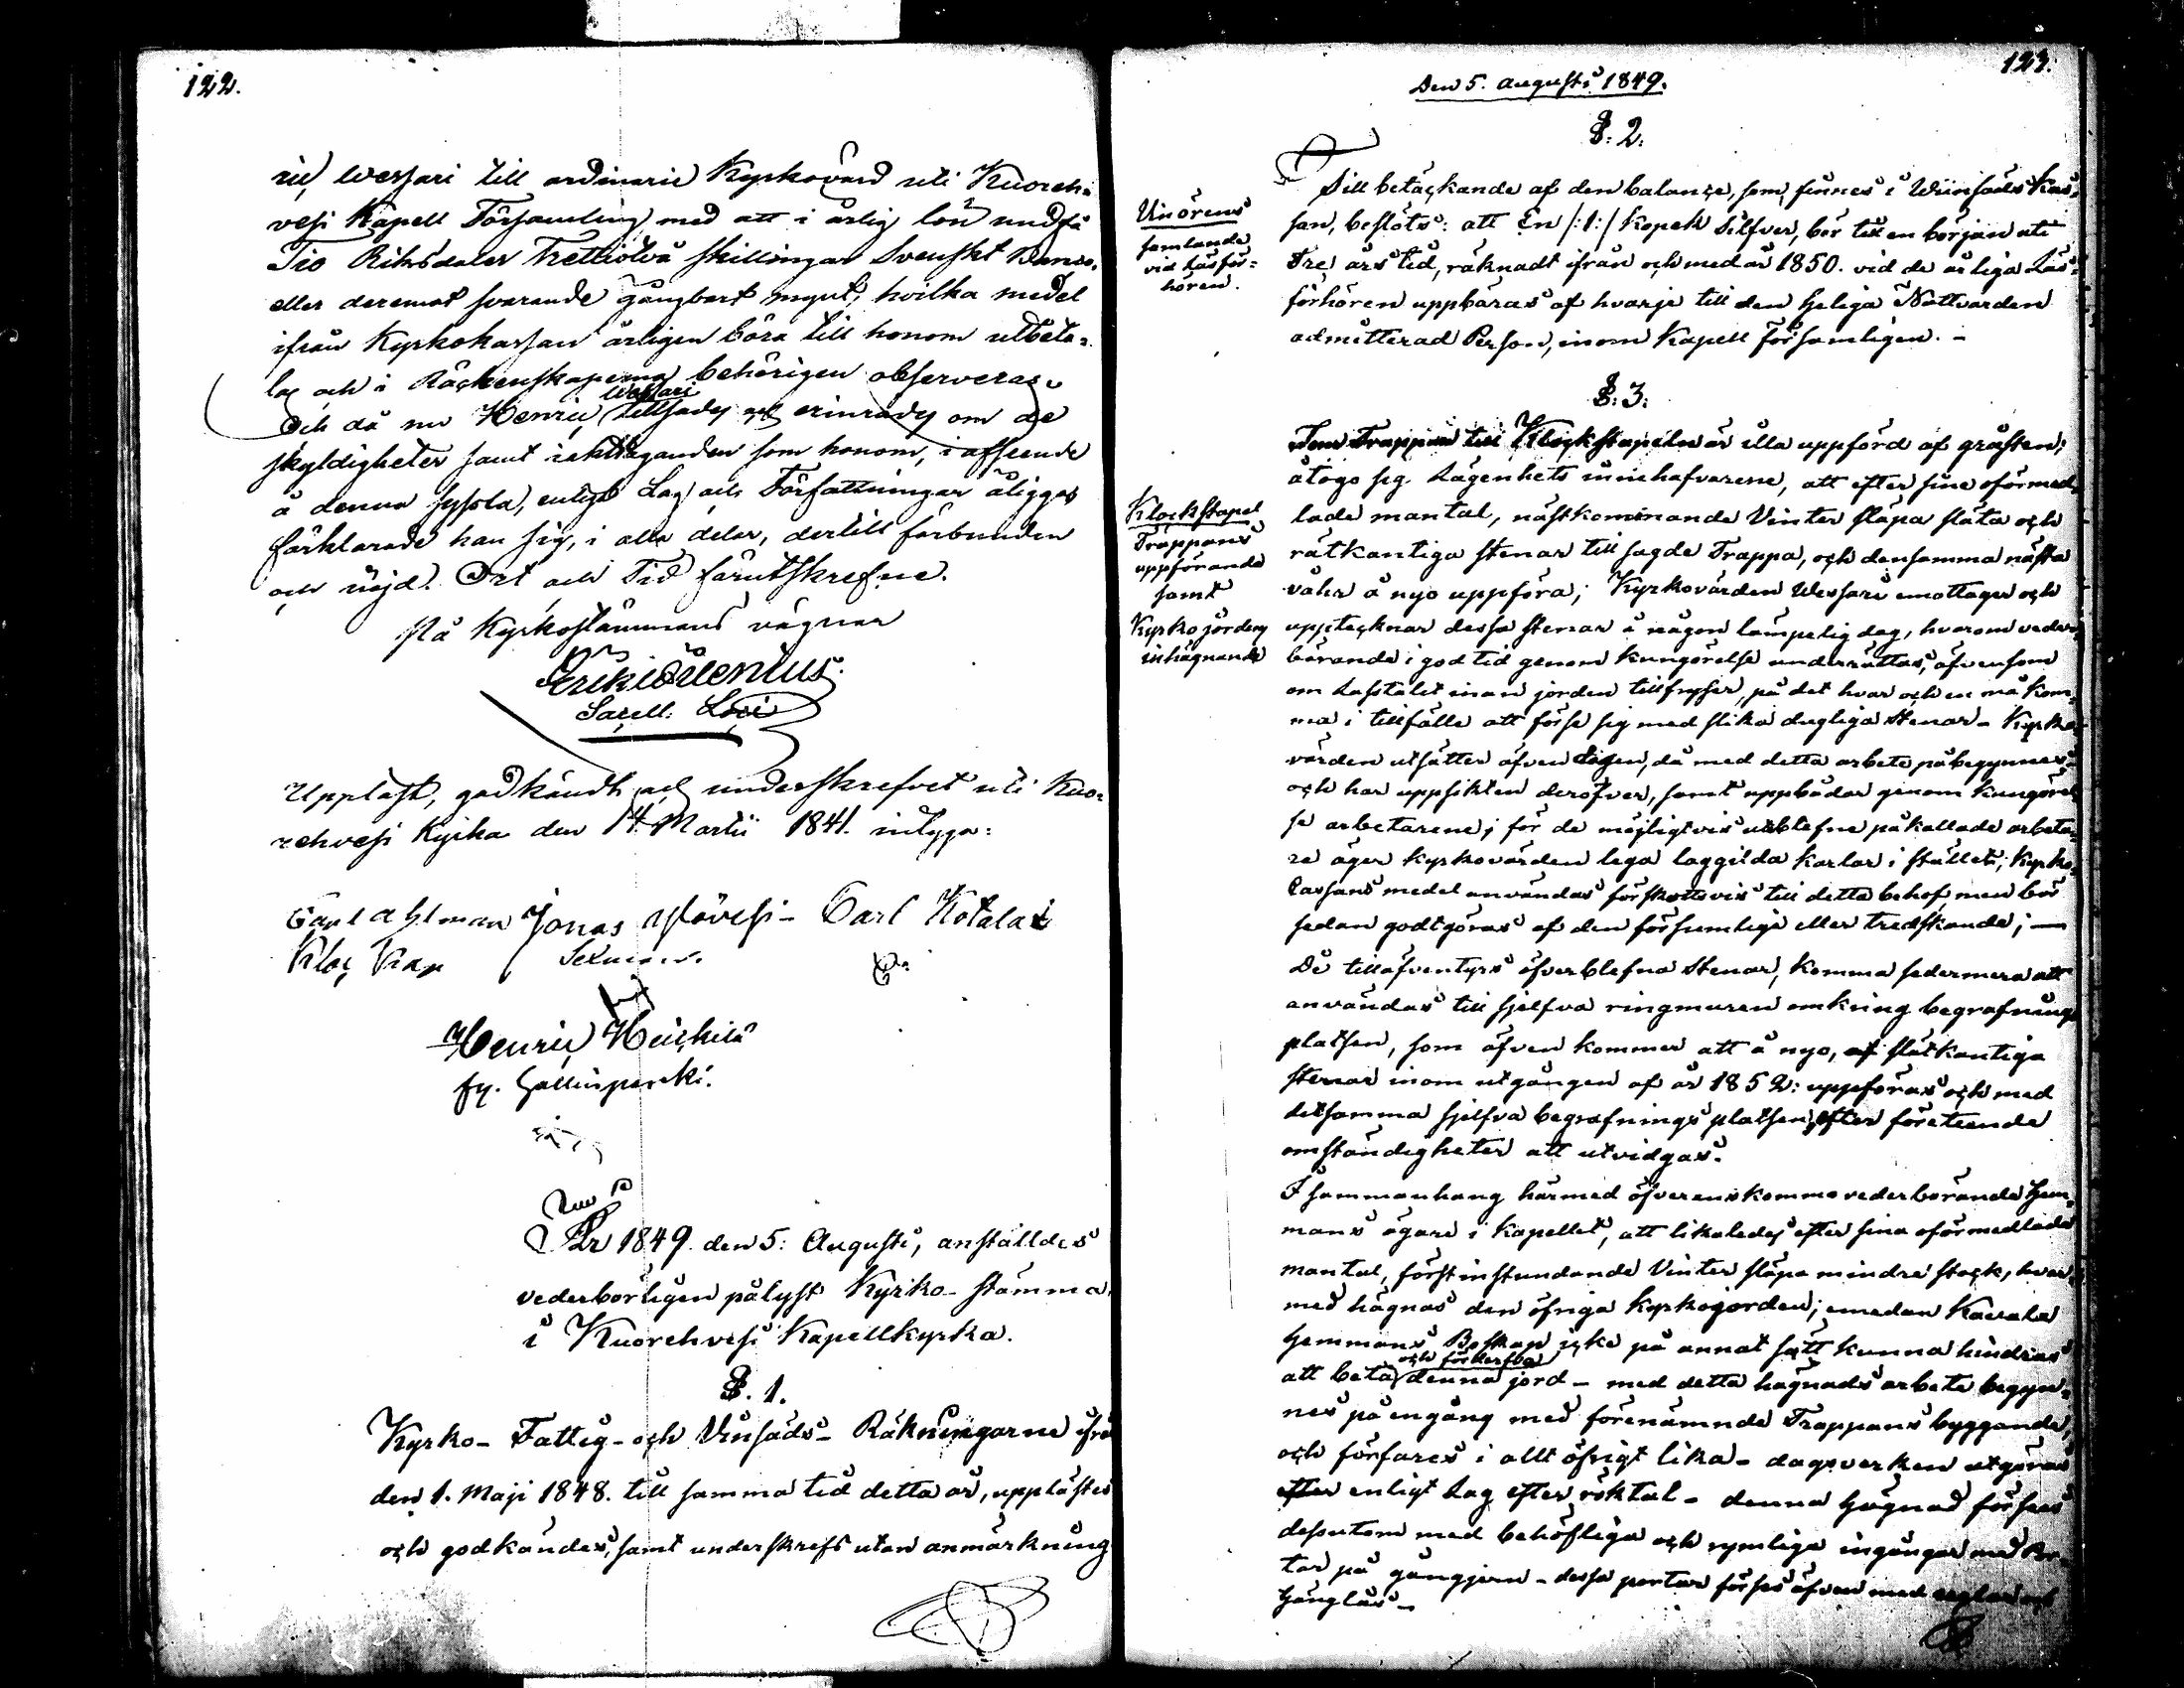 122.
ric Wessari till ordinarie Kyrkovärd uti Kuoreh-
vesi Kapell Församling, med att i årlig lön undfå
Tio Riksdaler Trettiotvå skillingar Svenskt Banco,
eller deremot svarande gångbart mynt, hvilka medel
ifrån Kyrkokassan årligen böra till honom utbeta-
las och i Räckenskaperna behörigen observeras.
Och då nu Henric Wessari tillsades och erinrades om de
skyldigheter samt iakttaganden som honom, i afseende
å denna syssla, enligt Lag och Författningar åligger
förklarade han sig, i alla delar, dertill förbunden
och nöjd. Ort och Tid förutskrefne.
På Kyrkostämmans vägnar
Eric
Sacell: Loci
Uppläst, godkändt och underskrefvet uti Kuo-
rehvesi Kyrka den 14. Martii 1841. intyga:
Carl Ahlman Jonas Carl Kotala
Kloc Kap Sexman.
Henric Heickilä
fr.
År 1849. den 5: Augusti, anställdes
vederbörligen pålyst Kyrko-stämma
i Kuorehvesi Kapellkyrka.
§. 1.
Kyrko- Fattig- och Vinsäds- Räkningarne ifrå
den 1. Maji 1848. till samma tid detta år, upplästes
och godkändes, samt underskrefs utan anmärkning
123.
Den 5. Augusti 1849.
§: 2.
Vinörens
samlande
vid Läsför-
hören.
Till betäckande af den balance, som finnes i Wiinsäds Kas-
san, beslöts: att En /:1:/ Kopek Silfver, bör till en början uti
Tre års tid, räknadt ifrån och med år 1850. vid de årliga Läs-
förhören uppbäras af hvarje till den heliga Nattvarden
admitterad Person, inom Kapell församligen. -
§: 3:
Klockstapel
Trappans
uppförande
samt
Kyrko jordens
inhägnande
Som Trappan till Klockstapeln är illa uppförd af gråsten,
åtogo sig Lägenhets innehafvarene, att efter sine oförmed-
lade mantal, nästkommande Vinter släpa släta och
rätkantiga stenar till sagde Trappa, och densamma nästa
vår å nyo uppföra; Kyrkovärden Wessari emottager och
uppteknar dessa stenar å någon lämpelig dag, hvarom veder-
börande i god tid genom kungörelse underrättas, äfvensom
om innan jorden tillfryser, på det hvar och en må kom-
ma i tillfälle att förse sig med slika dugliga stenar - Kyrko-
värden utsätter äfven dagen, då med detta arbete påbegynnes,
och har uppsikten deröfver, samt uppbådar genom kungörel-
se arbetarene; för de möjligtvis uteblefne påkallade arbeta-
re äger kyrkovärden lega laggilda karlar i stället; Kyrko-
Cassans medel användas förskottsvis till detta behof, men bör
sedan godtgöras af den försumliga eller tredskande; —
De tilläfventyrs öfverblefna stenar, komma sedermera att
användas till sjelfva ringmuren omkring begrafnings
platsen, som äfven kommer att å nyo, af slätkantiga
stenar inom utgången af år 1852: uppföras och med
detsamma sjelfva begrafnings platsen, efter företeende
omständigheter att utvidgas.
I sammanhang härmed öfverenskommo vederbörande Hem-
mans ägare i kapellet, att likaledes efter sina oförmedlade
mantal, först instundande Vinter släpa mindre stock, hvar-
med hägnas den öfriga kyrkojorden; emedan Kaivala
Hemmans Boskap icke på annat sätt kunna hindras
att beta och förderfva denna jord - med detta hägnads arbete begyn-
nes på engång med förenämnde Trappans byggande,
och förfares i allt öfrigt lika - dagsverken utgöras
efter enligt Lag efter röktal - denna hägnad förses
desutom med behöfliga och rymliga ingångar med Por-
tar på gångjern - dessa portar förses äfven med reglar och
hänglås -